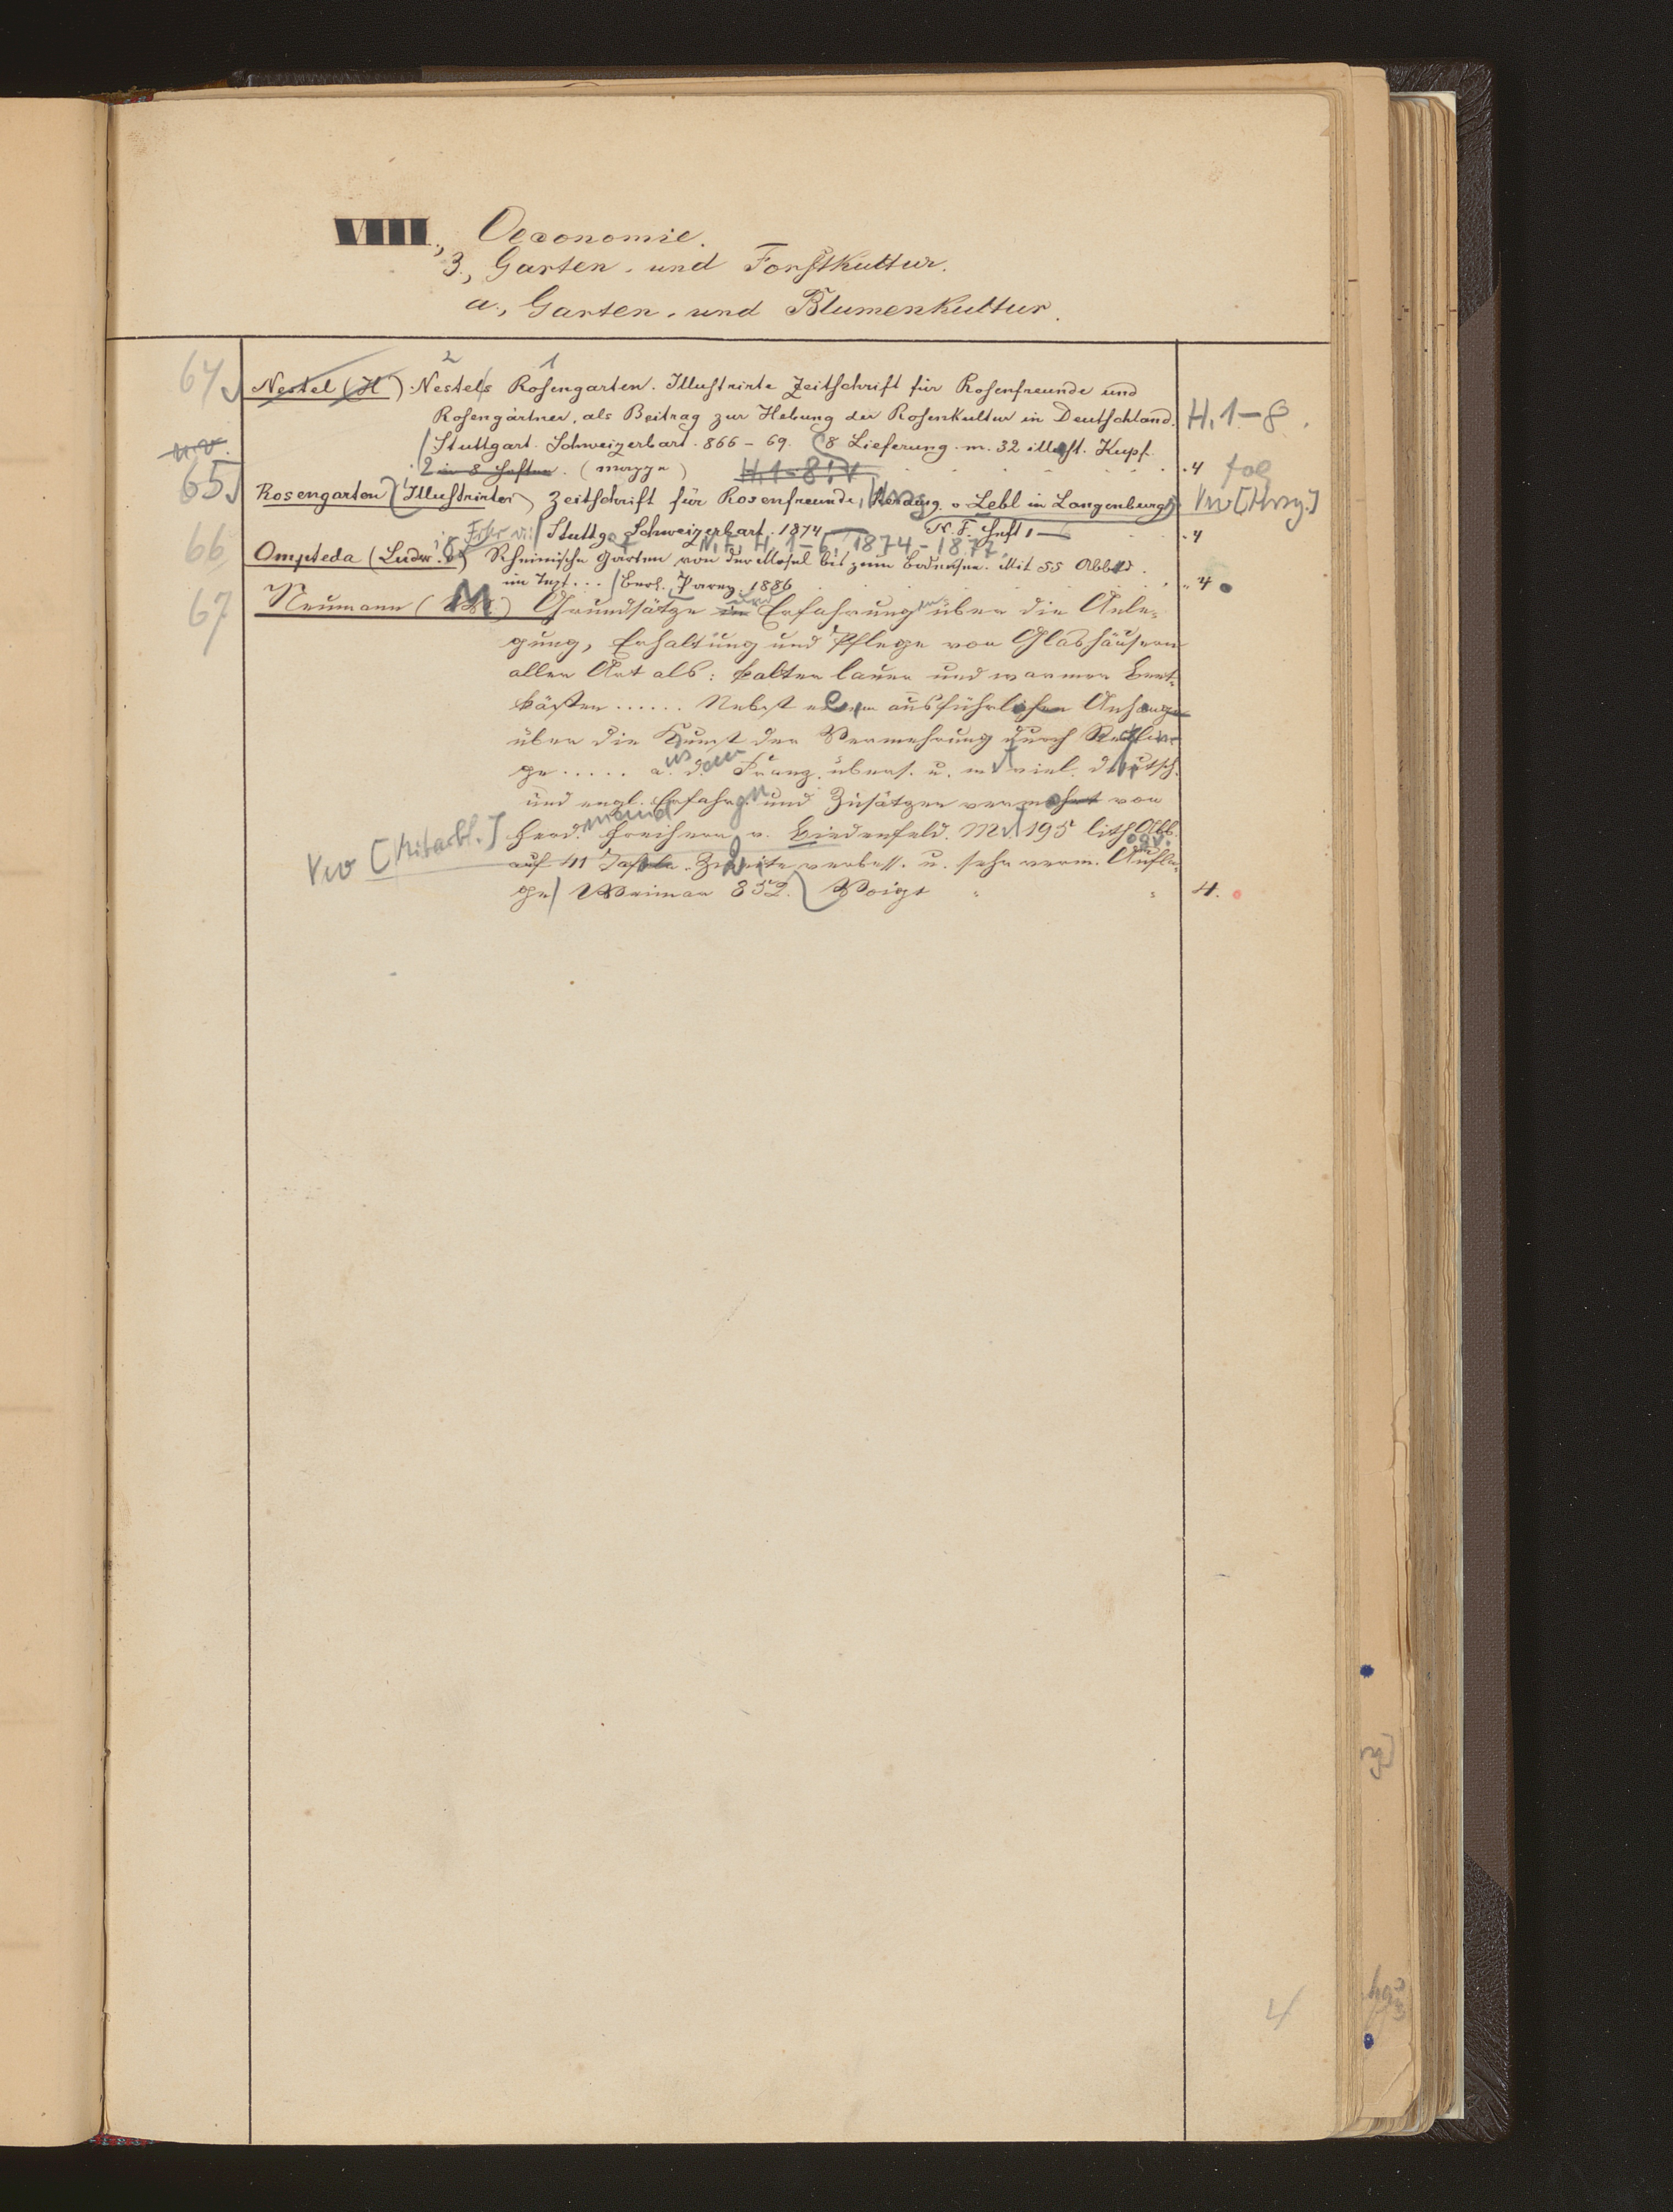 VIII., Oeconomie.
3., Garten- und Forstkultur.
a., Garten- und Blumenkultur.
2 1
64 Nestel (H.) Nestel's Rosengarten. Illustrirte Zeitschrift für Rosenfreunde und
Rosengärtner, als Beitrag zur Hebung der Rosenkultur in Deutschland. H. 1-8.
Stuttgart. Schweizerbart. 866-69. 8 Lieferung. m. 32 illust. Kupf.
n.v. 2 in 8 Heften. (Mappe) H. 1-8 4 fol
65 Rosengarten Illustrirter Zeitschrift für Rosenfreunde, Hrsg. v. Lebl in Langenburg Vw [Hrsg.]
Frhr v. Stuttg. Schweizerbart. 1874 N. F. Heft 1- 4
N. F. H. 1-6. 1874-1877.
66 Ompteda (Ludw. v.) Rheinische Gärten von der Mosel bis zum Bodensee. Mit 55 Abbild.
im Text... Berl. Parey. 1886 4
67 Neumann (M.) Grundsätze und Erfahrungen über die Anle-
gung, Erhaltung und Pflege von Glashäusern
aller Art als: kalter lauer und warmer Beet-
kästen...... Nebst einem ausführlichen Anhange
über die Kunst der Vermehrung durch Stecklin-
ge..... aus dem Franz. übers. u. mit viel. deutsch.
und engl. Erfahrgn und Zusätzen vermehrt von
Ferdinand Freiherr v. Biedenfeld. Mit 195 lithogr. Abb.
Vw [Mitarb.] auf 41 Tafeln. Zweite verbess. u. sehr verm. Aufla-
ge Weimar 852. Voigt 4.
4